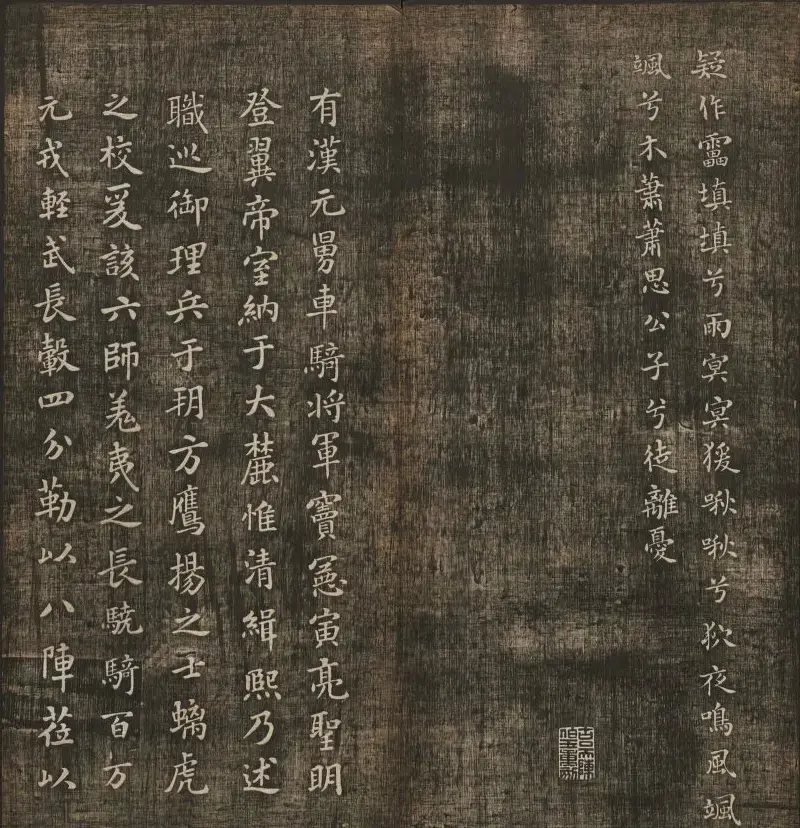 疑作靁填填兮雨冥冥猨啾啾兮狖夜鳴風颯
颯兮木蕭蕭思公子兮徒離憂
有漢元舅車騎将軍竇憲寅亮聖明
登翼帝室納于大麓惟清緝熙乃述
職巡御理兵于朔方鷹揚之士螭虎
之校爰該六師羌夷之長驍騎百万
元戎輕武長轂四分勒以八陣莅以